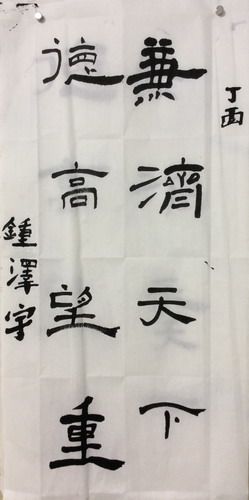 丁酉
兼濟天下
德高望重
鍾澤宇